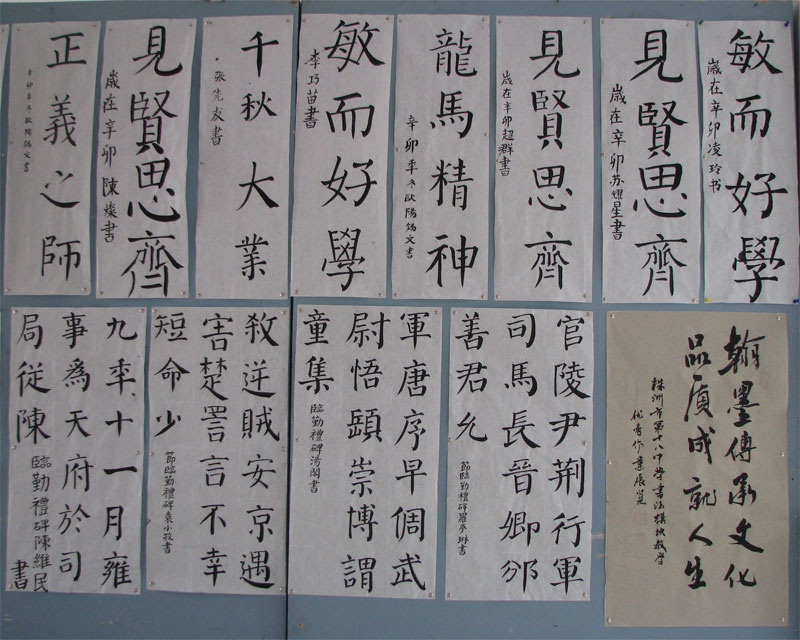 敏而好學
歲在辛卯凌玲书
見賢思齊
歲在辛卯苏耀星書
見賢思齊
歲在辛卯超群書
龍馬精神
辛卯季冬歐陽鍚文書
敏而好學
李巧苗書
千秋大業
張先友書
見賢思齊
歲在辛卯陳燦書
正義之師
辛卯季冬歐陽鍚文書
翰墨傳承文化
品质成就人生
株洲市第十八中學書法模块教學
优秀作業展览
官陵尹荆行軍
司馬長晉卿邠
善君允
節臨勤禮碑羅琳書
軍唐序早倜武
尉悟頤崇博謂
童集
臨勤禮碑湯閣書
殺逆賊安京遇
害楚詈言不幸
短命少
節臨勤禮碑袁小書
九季十一月雍
事為天府於司
局従陳
臨勤禮碑陳維民書